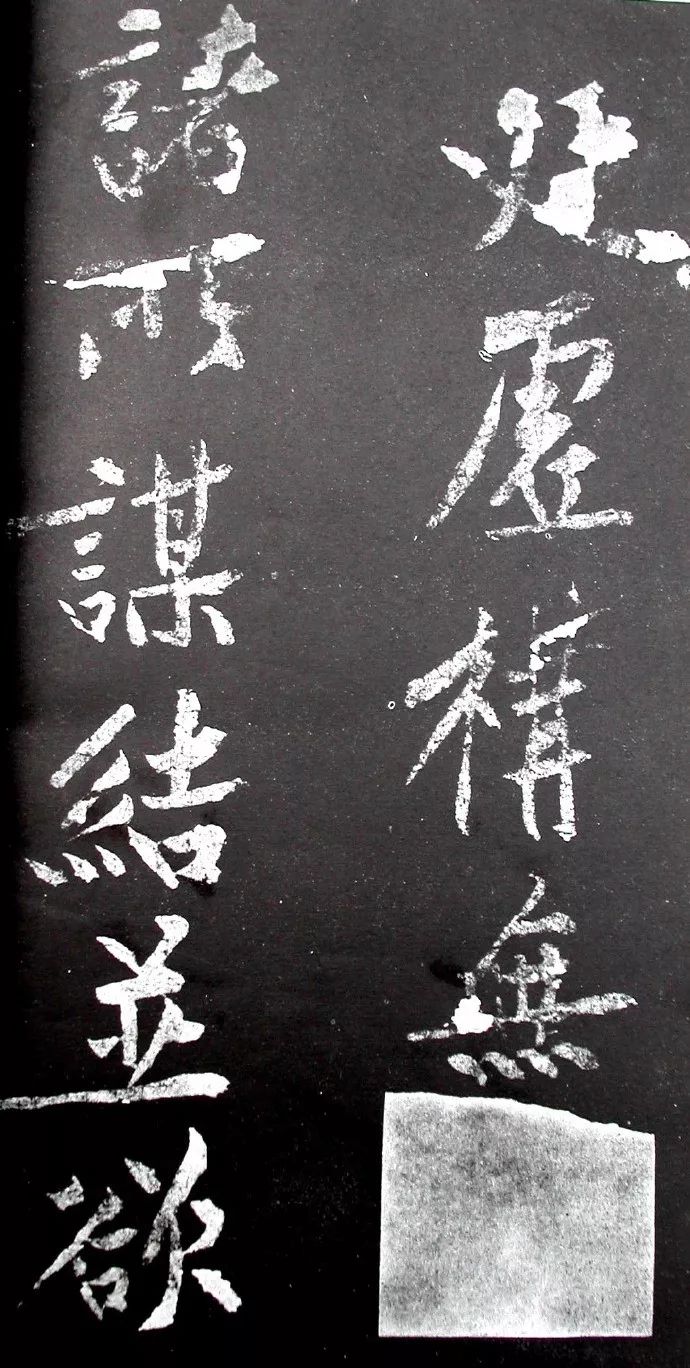 虛構無
諸所謀結並欲